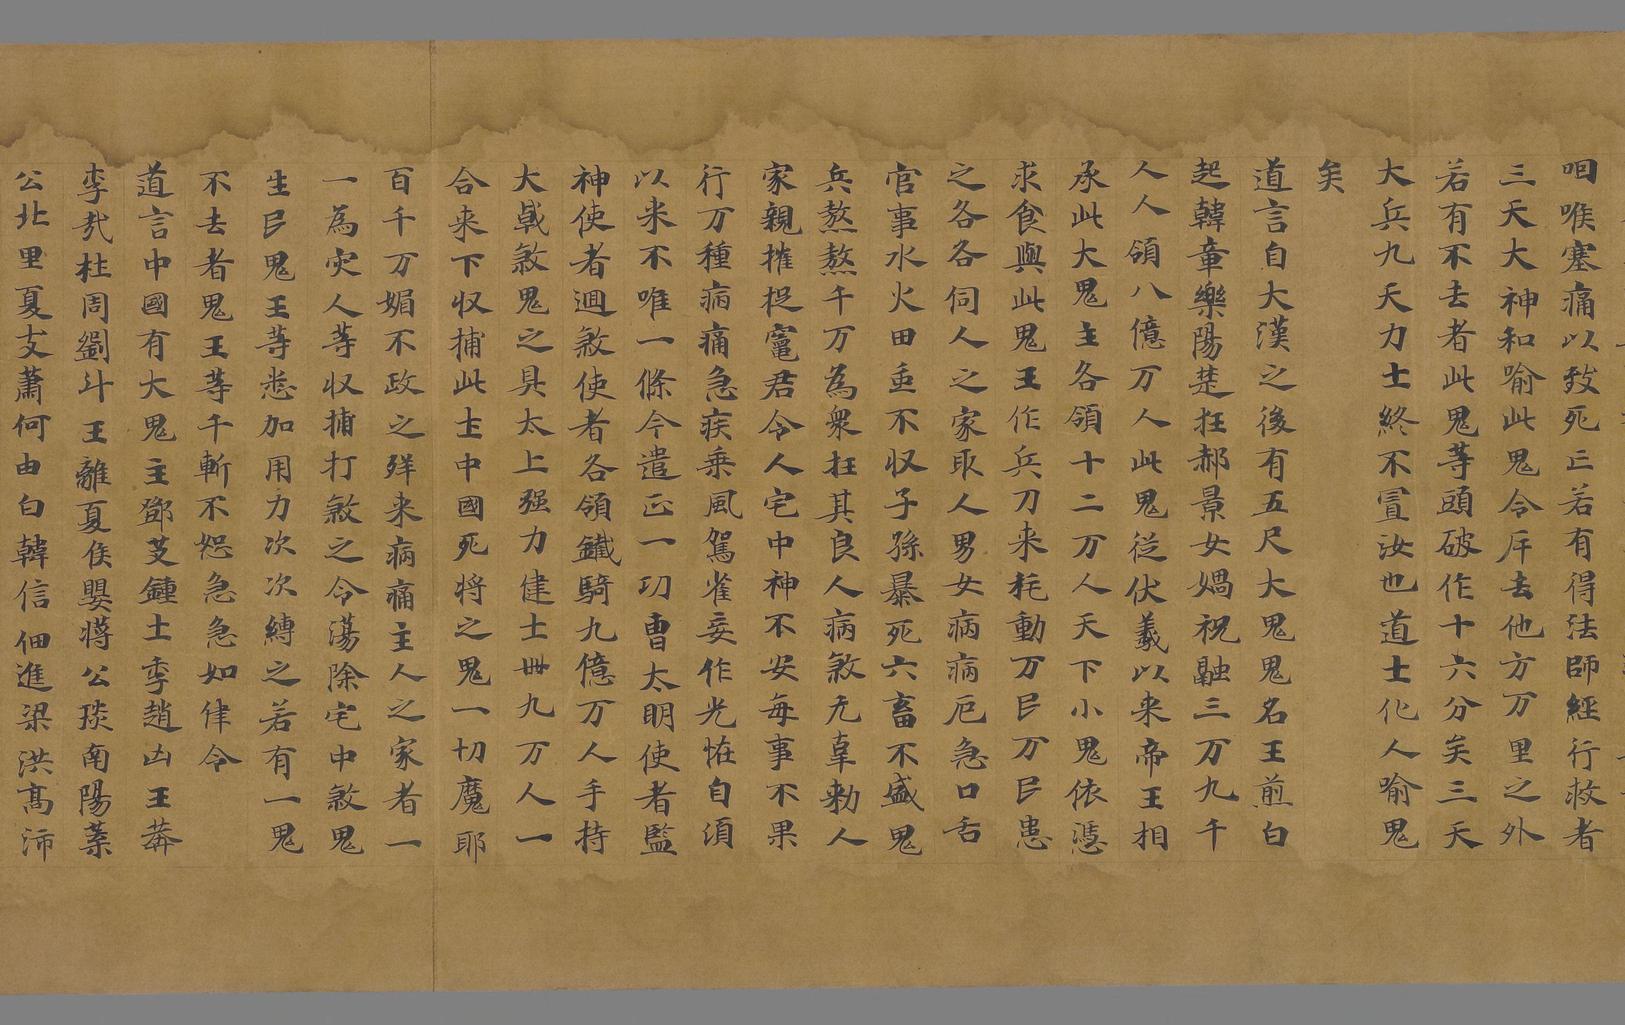 咽喉塞痛以致死亡若有得法師經行救者
三天大神和喻此鬼令斥去他方万里之外
若有不去者此鬼等頭破作十六分矣三天
大兵九天力士終不冝汝也道士化人喻鬼
矣
道言自大漢之後有五尺大鬼鬼名王煎白
起韓章樂陽楚狂郝景女媧祝融三万九千
人人領八億万人此鬼従伏羲以来帝王相
承此大鬼主各領十二万人天下小鬼依憑
求食與此鬼王作兵刀来耗動万民万民患
之各各伺人之家取人男女病病厄急口舌
官事水火田蚕不収子孫暴死六畜不盛鬼
兵熬熬千万為衆抂其良人病煞无辜勑人
家親摧捉竈君令人宅中神不安每事不果
行万種病痛急疾乗風駕雀妄作光恠自湏
以来不唯一條今遣正一功曹太明使者監
神使者迴煞使者各領鐵騎九億万人手持
大戟煞鬼之具太上强力健士卌九万人一
合来下収捕此士中國死将之鬼一切魔耶
百千万媚不政之鲜来病痛主人之家者一
一為灾人等収捕打煞之令蕩除宅中煞鬼
生民鬼王等悉加用力次次縛之若有一鬼
不去者鬼王等千斬不恕急急如律令
道言中國有大鬼主鄧艾鍾士季趙凶王莽
李哉柱周劉斗王離夏侯嬰蒋公琰南陽葉
公北里夏支蕭何由白韓信佃進梁洪髙沛